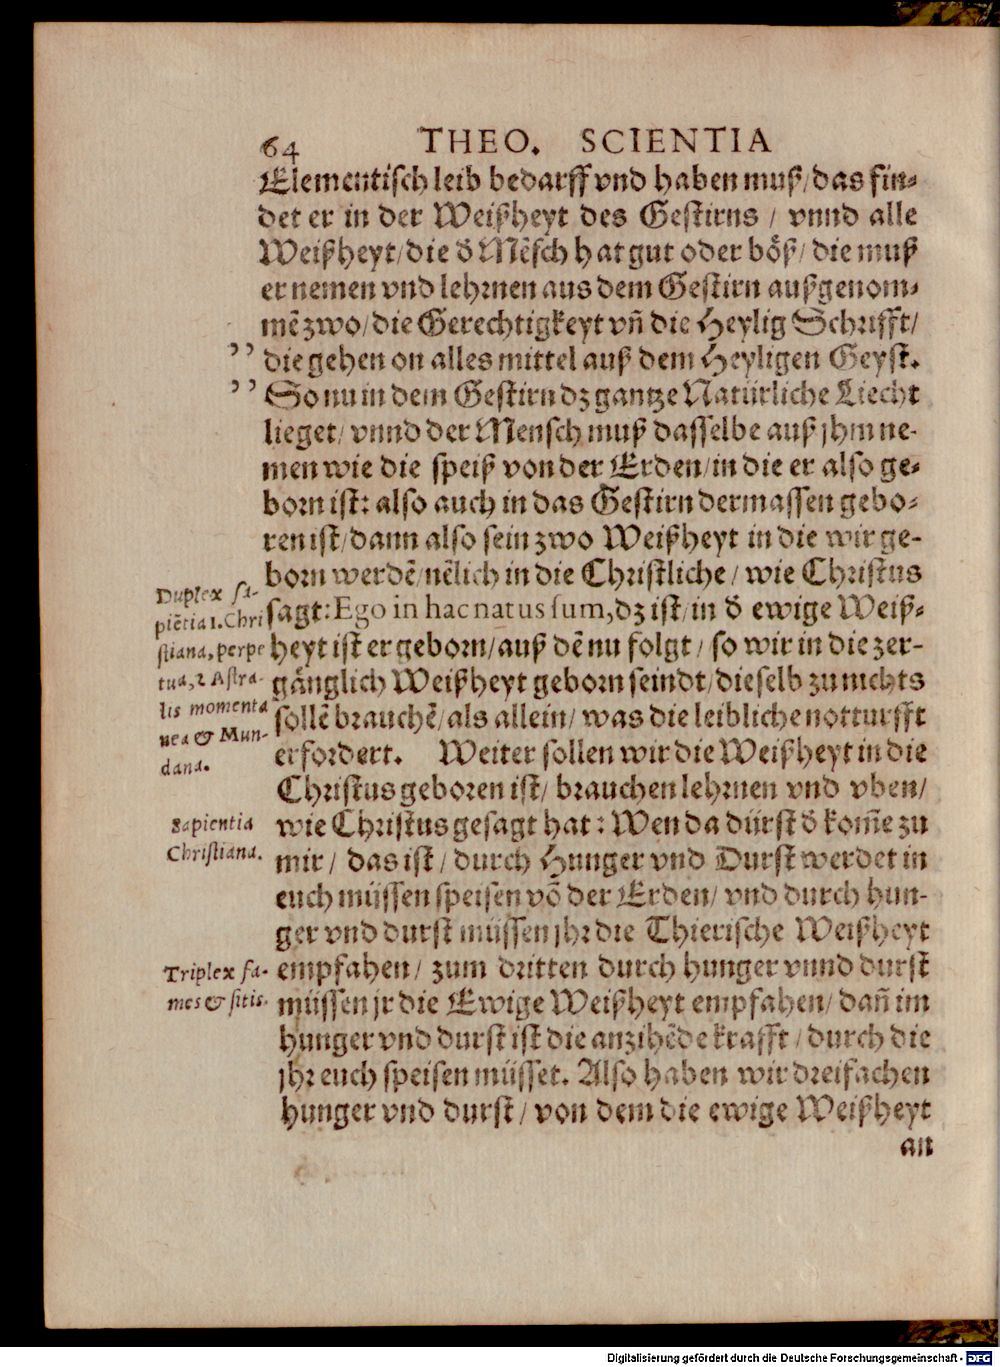 64 THEO. SCIENTIA
Elementisch leib bedarff vnd haben muß/das fin-
det er in der Weißheyt des Gestirns / vnnd alle
Weißheyt/die d̄ Mēsch hat gut oder böß/die muß
er nemen vnd lehrnen aus dem Gestirn außgenom-
mē zwo/die Gerechtigkeyt vn̄ die Heylig Schrifft/
" die gehen on alles mittel auß dem Heyligen Geyst.
" So nu in dem Gestirn dz gantze Natürliche Liecht
lieget/vnnd der Mensch muß dasselbe auß jhm ne-
men wie die speiß von der Erden/in die er also ge-
born ist: also auch in das Gestirn dermassen gebo-
ren ist/dann also sein zwo Weißheyt in die wir ge-
born werdē/nēlich in die Christliche / wie Christus
sagt: Ego in hac natus sum, dz ist/in d̄ ewige Weiß-
heyt ist er geborn/auß dē nu folgt / so wir in die zer-
gänglich Weißheyt geborn seindt/dieselb zu nichts
sollē brauchē/als allein/was die leibliche notturfft
erfordert. Weiter sollen wir die Weißheyt in die
Christus geboren ist/brauchen lehrnen vnd vben/
wie Christus gesagt hat: Wen da dürst d̄ kom̄e zu
mir / das ist / durch Hunger vnd Durst werdet in
euch müssen speisen vō der Erden/ vnd durch hun-
ger vnd durst müssen jhr die Thierische Weißheyt
empfahen/ zum dritten durch hunger vnnd durst
müssen jr die Ewige Weißheyt empfahen/dan̄ im
hunger vnd durst ist die anzihēde krafft/durch die
jhr euch speisen müsset. Also haben wir dreifachen
hunger vnd durst / von dem die ewige Weißheyt
an
Duplex sa-
piētia 1. Chri
stiana, perpe
tua, 2 Astra-
lis momenta
nea & Mun-
dana.
Sapientia
Christiana.
Triplex fa-
mes & sitis.
Digitalisierung gefördert durch die Deutsche Forschungsgemeinschaft - DFG